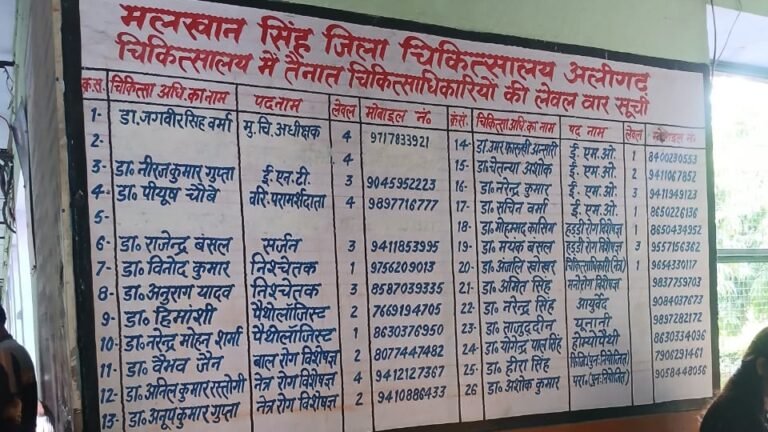 मलखान सिंह जिला चिकित्सालय अलीगढ़
चिकित्सालय में तैनात चिकित्साधिकारियों की लेवल वार सूची
क्र.सं. चिकित्सा अधि. का नाम पदनाम लेवल मोबाइल नं०
1- डा. जगवीर सिंह वर्मा मु. चि. अधीक्षक 4 9717833921
2- 4
3- डा० नीरज कुमार गुप्ता ई० एन. टी. 3 9045952223
4- डा० पीयूष चौबे वरि. परामर्शदाता 4 9897716777
5-
6- डा० राजेन्द्र बंसल सर्जन 3 9411853995
7- डा० विनोद कुमार निश्चेतक 1 9756209013
8- डा० अनुराग यादव निश्चेतक 3 8587039335
9- डा० हिमांशी पैथोलॉजिस्ट 2 7669194705
10- डा० नरेन्द्र मोहन शर्मा पैथोलॉजिस्ट 1 8630376950
11- डा० वैभव जैन बाल रोग विशेषज्ञ 2 8077447482
12- डा० अनिल कुमार रस्तोगी नेत्र रोग विशेषज्ञ 4 9412127367
13- डा० अनूप कुमार गुप्ता नेत्र रोग विशेषज्ञ 2 9410886433
क्र.सं. चिकित्सा अधि. का नाम पद नाम लेवल मोबाइल नं०
14- डा. उमर फारुखी अन्सारी ई. एम. ओ. 1 8400230553
15- डा. चेतन्या अशोक ई. एम. ओ. 2 9411067852
16- डा० नरेन्द्र कुमार ई. एम. ओ. 3 9411949123
17- डा० सचिन वर्मा ई. एम. ओ. 1 8650226136
18- डा. मोहम्मद कासिम हड्डी रोग विशेषज्ञ 1 8650434952
19- डा० मयंक बंसल हड्डी रोग विशेषज्ञ 3 9557156362
20- डा० अंजलि चिकित्साधिकारी 1 9654330117
21- डा० अमित सिंह मनोरोग विशेषज्ञ 9837759703
22- डा० नरेन्द्र सिंह आयुर्वेद 9084037673
23- डा० ताजुद्दीन यूनानी 9897282172
24- डा० योगेन्द्र पाल सिंह होम्योपैथी 8630334096
25- डा० हीरा सिंह फिजि. (पुनःनियोजित) 7906291461
26 डा० अशोक कुमार परा. (पुनःनियोजित) 9058448056